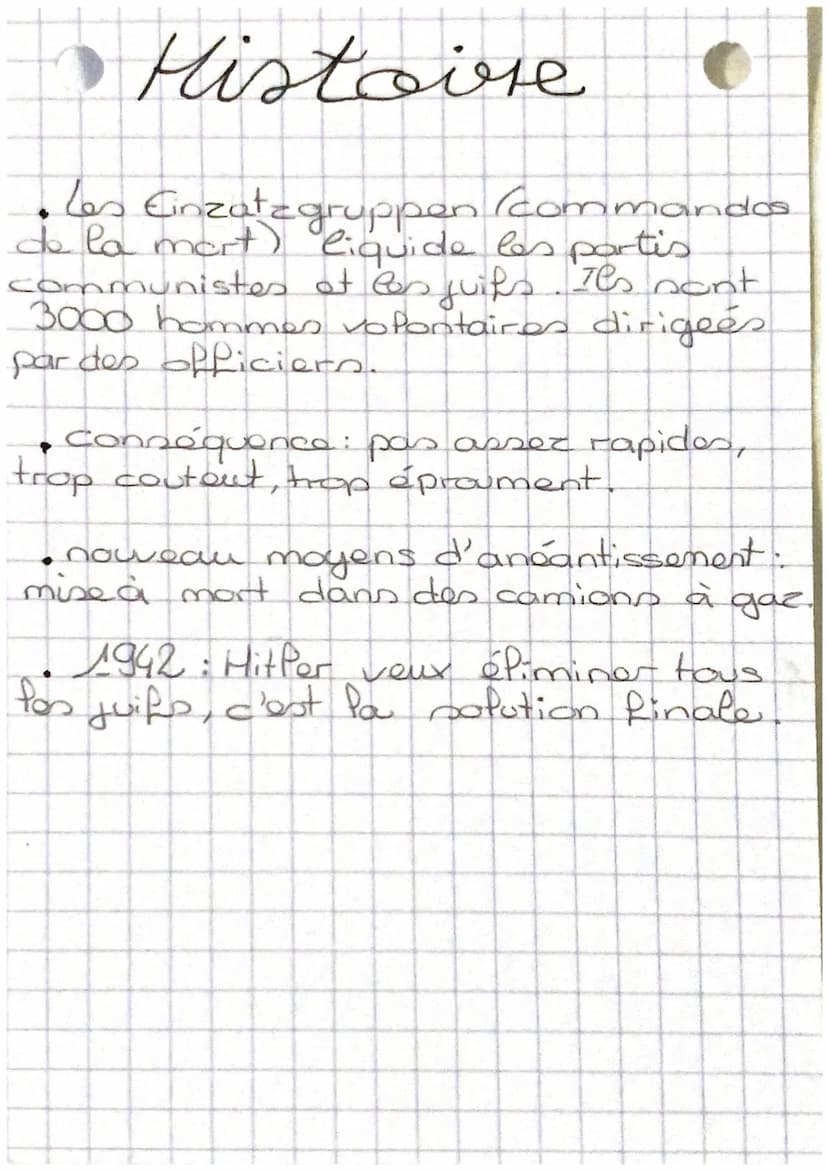 Histoire
. Les Einzatzgruppen (commandos
de la mort) liquide les partis
communistes et les juifs. Ils sont
3000 hommes volontaires dirigeés
par des officiers.
. conséquence : pas assez rapides,
trop couteut, trop éproument.
. nouveau moyens d'anéantissement :
mise à mort dans des camions à gaz.
. 1942 : Hitler veux éliminer tous
les juifs, c'est la solution finale.